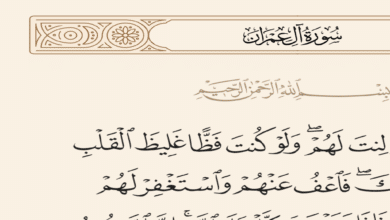 سُورَةُ آلِ عِمْرَانَ
ـمِ اللَّهِ الرَّحْمَٰنِ الرَّحِيمِ
لِنتَ لَهُمْ ۖ وَلَوْ كُنتَ فَظًّا غَلِيظَ ٱلْقَلْبِ
ـكَ ۖ فَٱعْفُ عَنْهُمْ وَٱسْتَغْفِرْ لَهُمْ